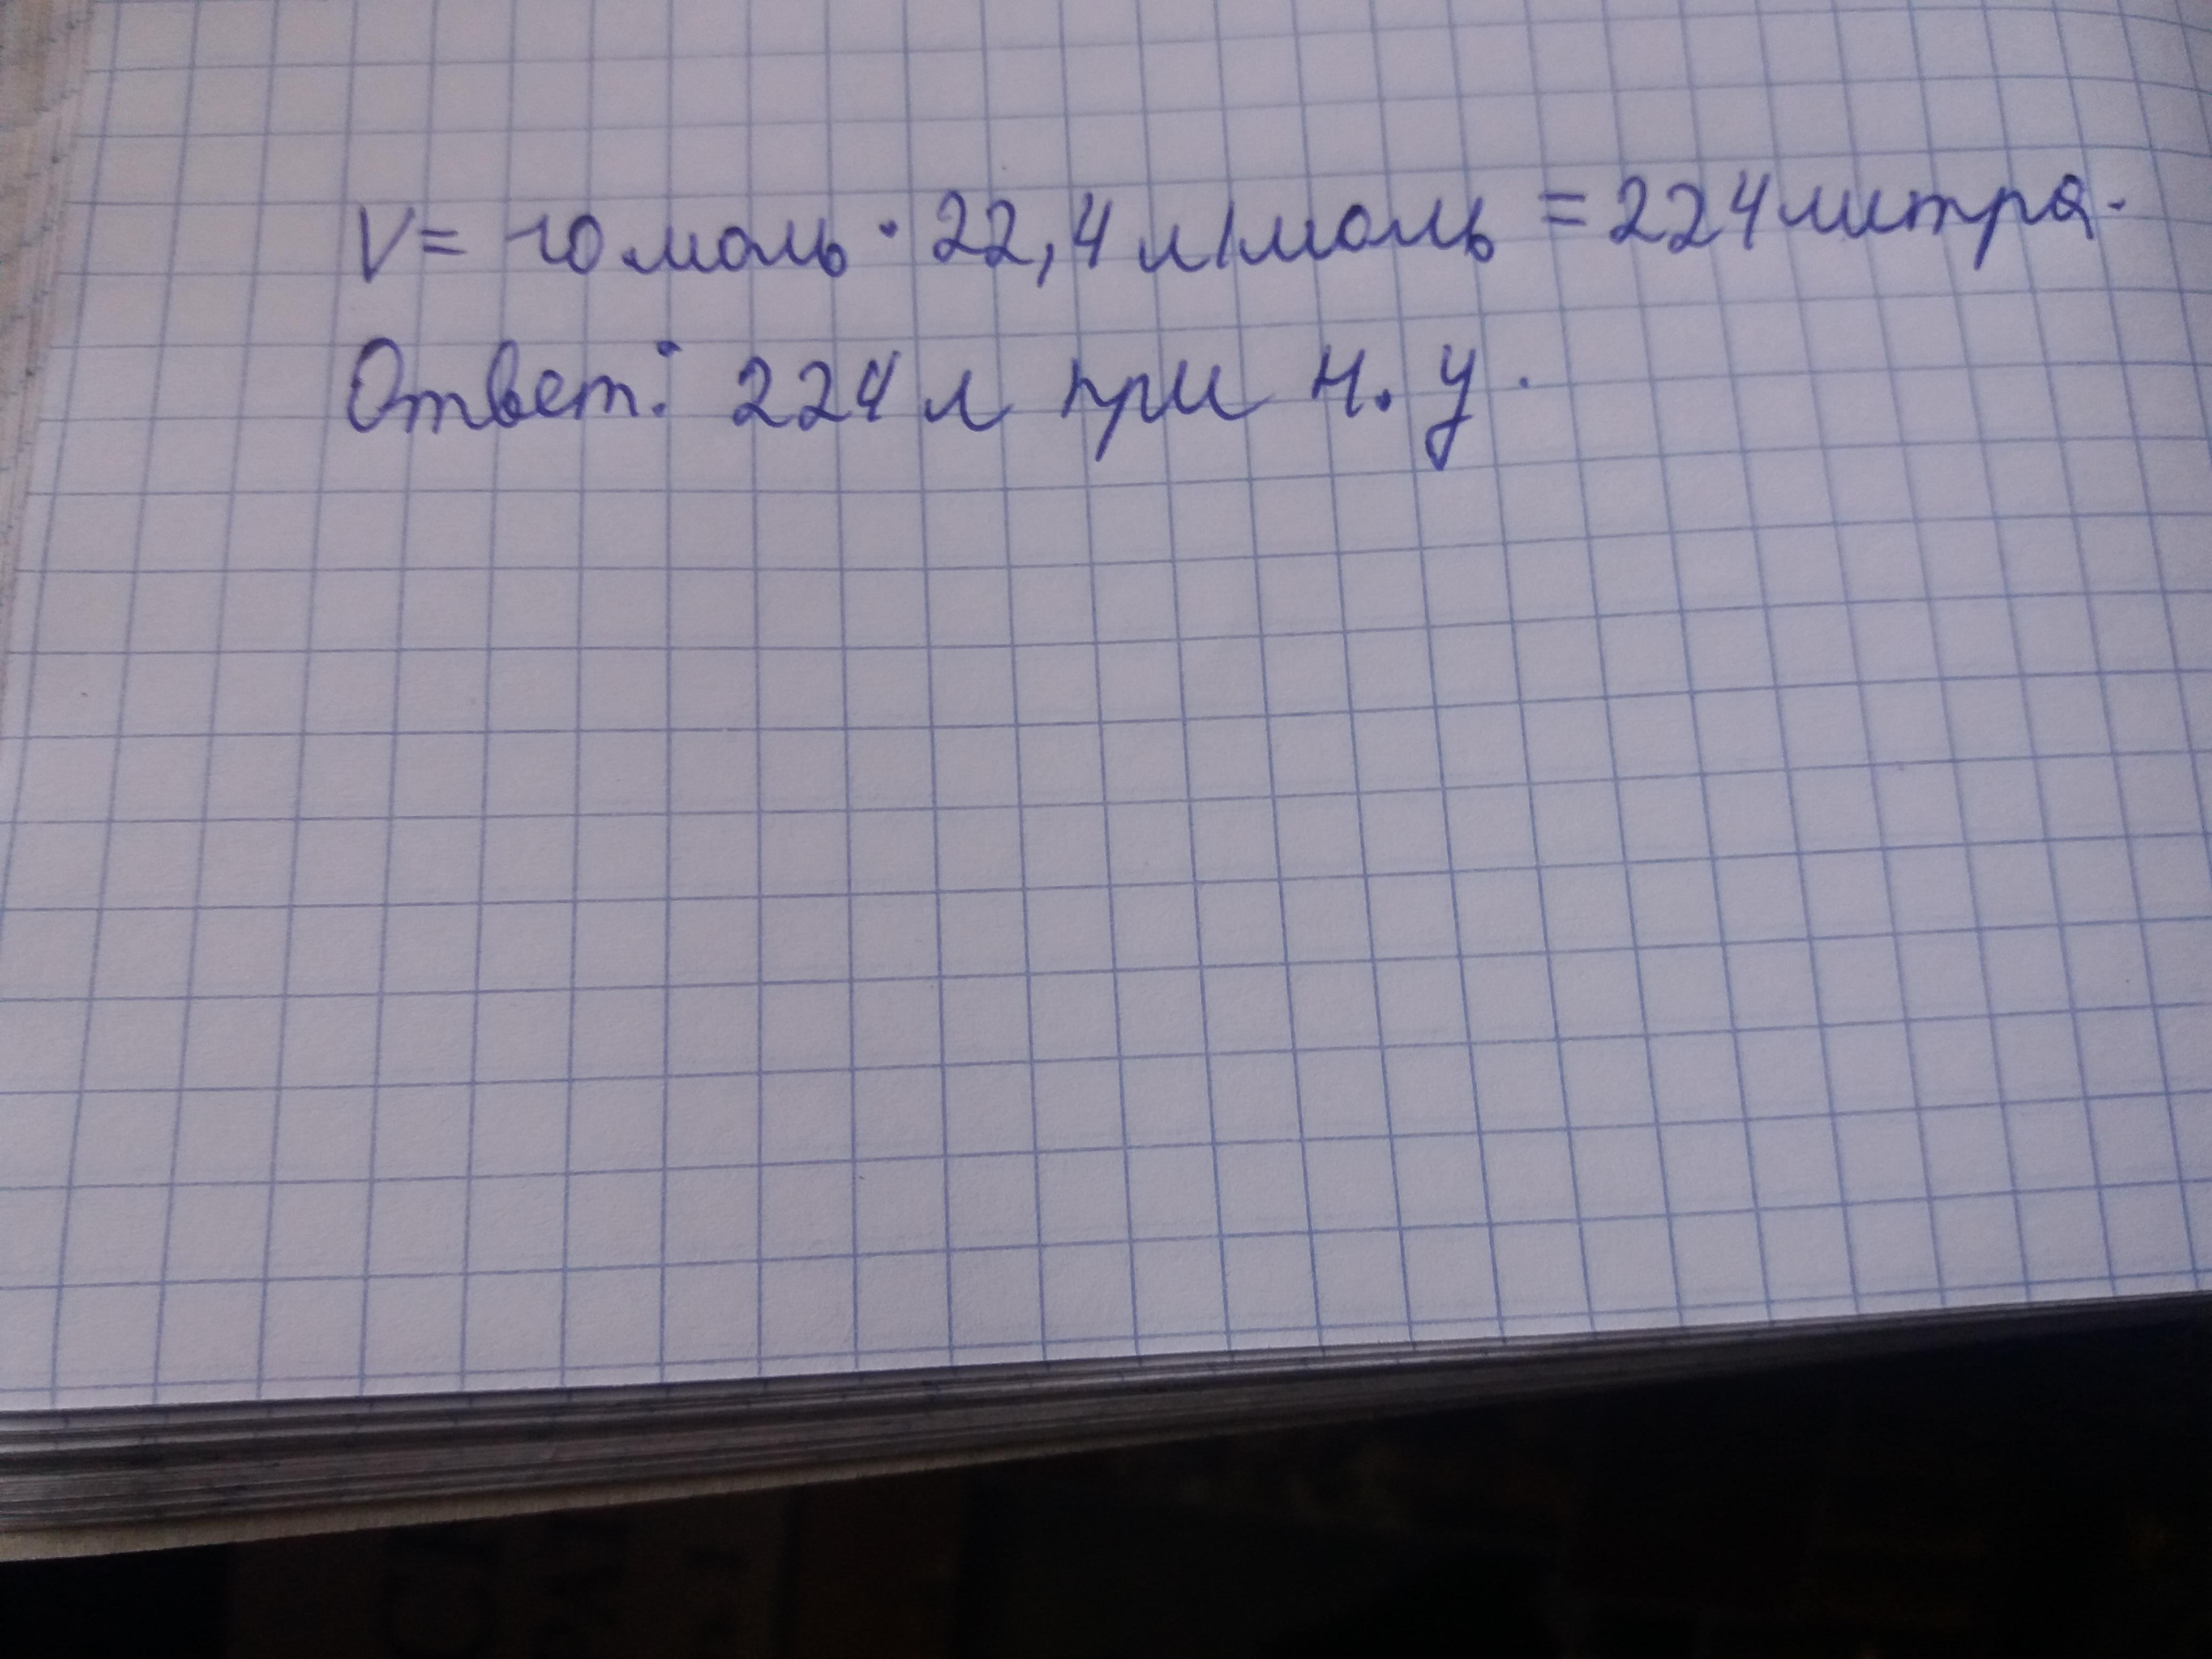 V = 10 моль · 22,4 л/моль = 224 литра.
Ответ: 224 л при н. у.